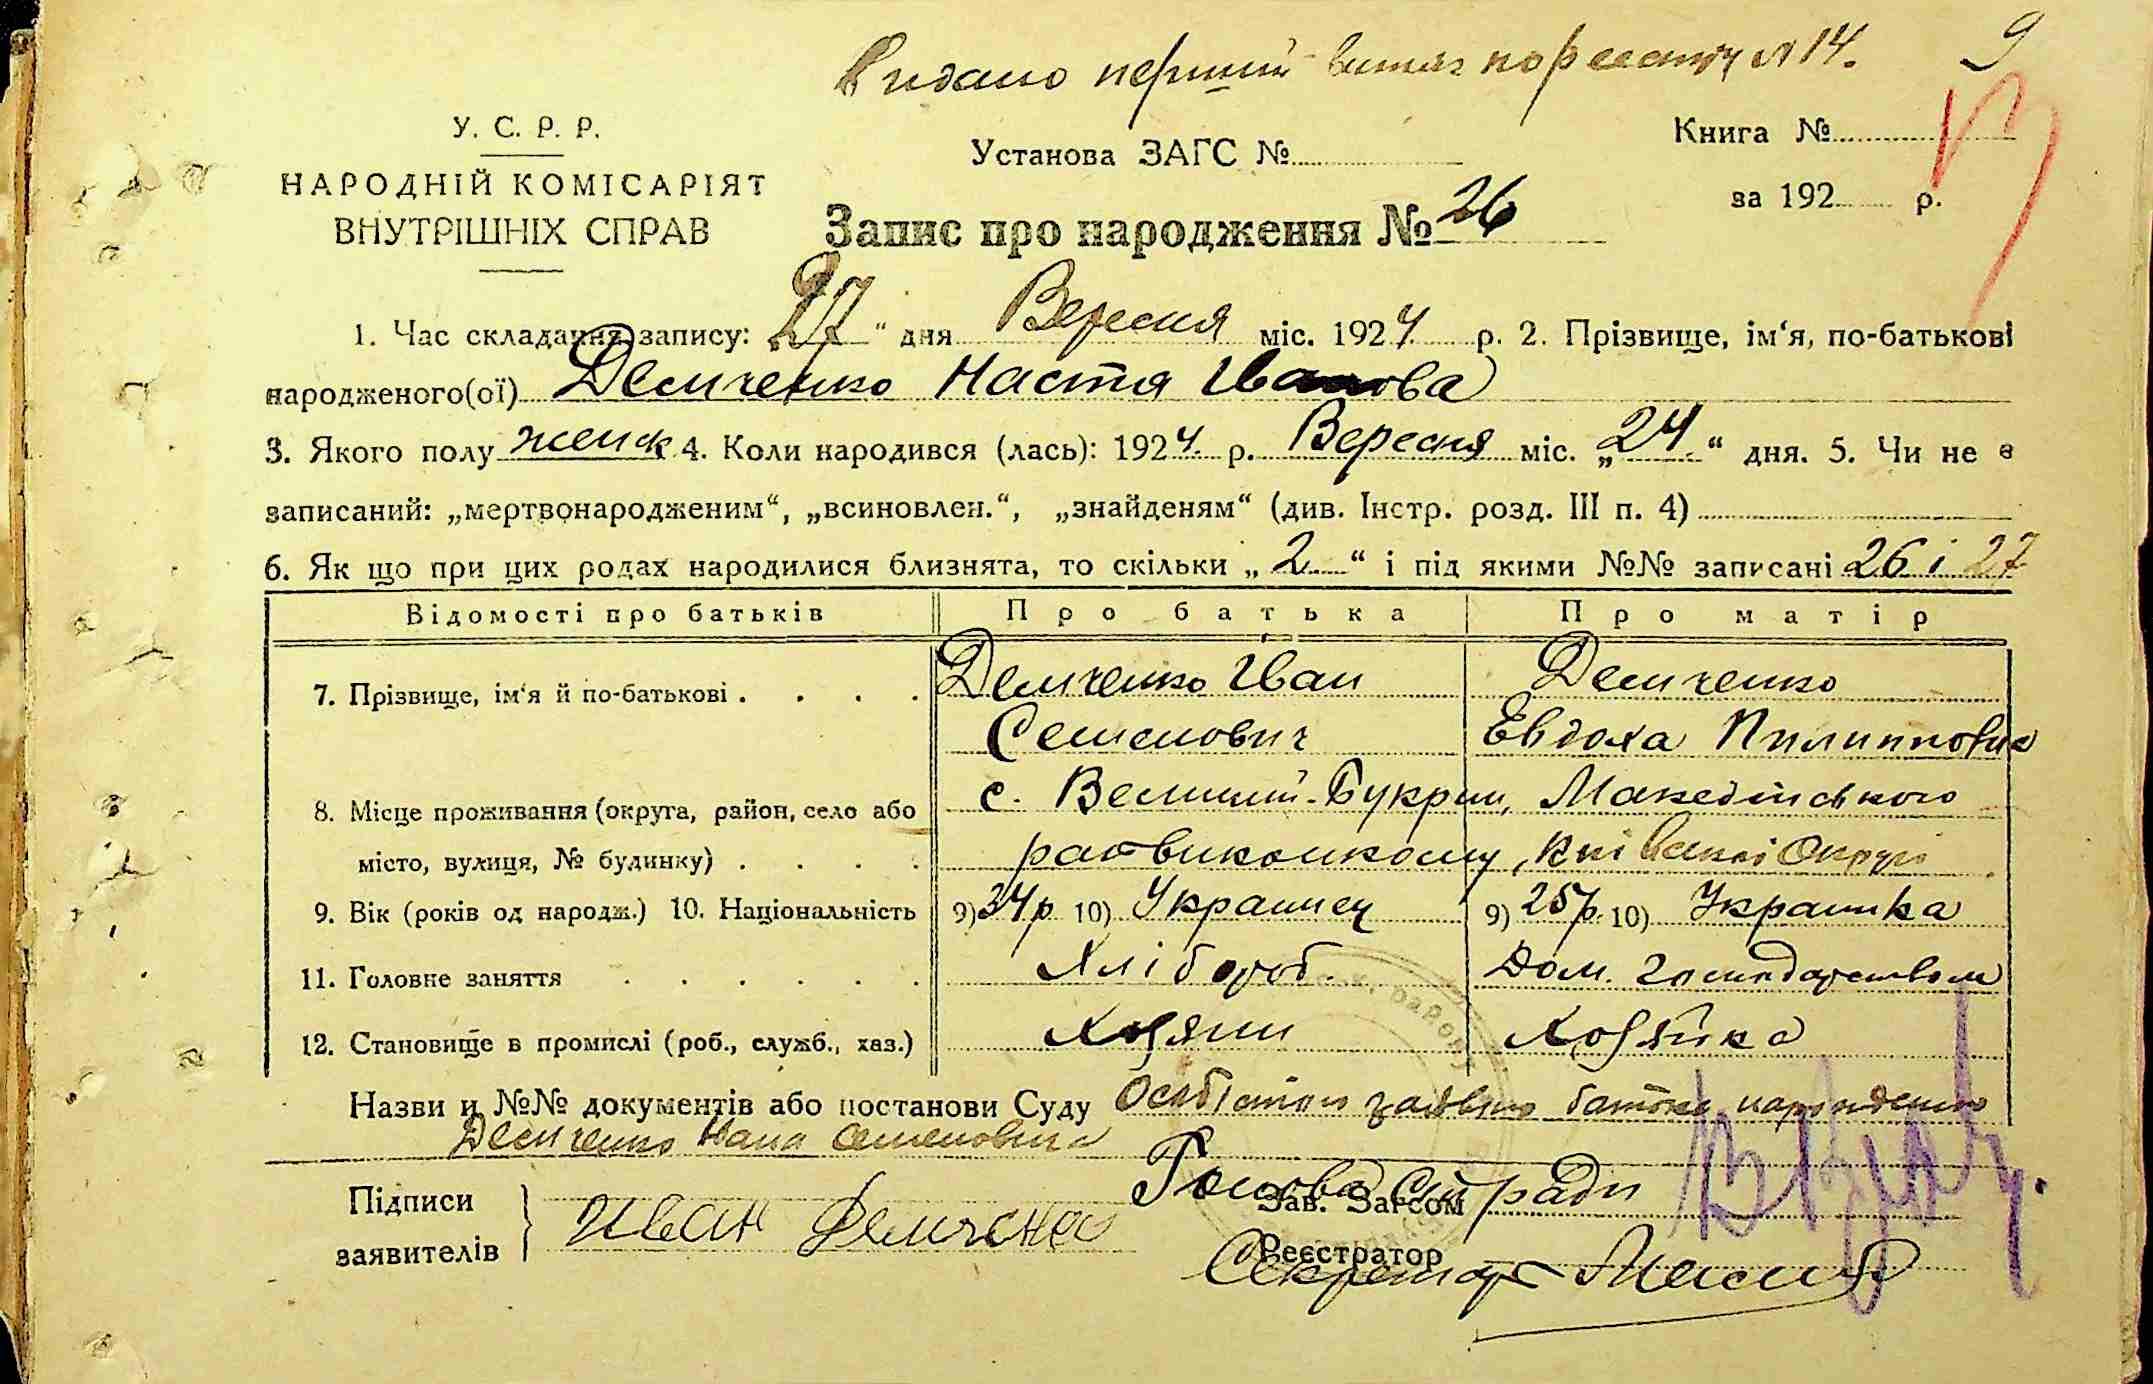 Видано перший витяг по реєстру № 14. 9
У. С. Р. Р.
НАРОДНІЙ КОМІСАРІЯТ
ВНУТРІШНІХ СПРАВ
Установа ЗАГС №
Книга №
за 192 р.
Запис про народження № 26
1. Час складання запису: 27 " дня Вересня міс. 1924 р. 2. Прізвище, ім‘я, по-батькові
народженого(ої) Демченко Настя Іванова
3. Якого полу женск 4. Коли народився (лась): 1924 р. Вересня міс. „24“ дня. 5. Чи не є
записаний: „мертвонародженим“, „всиновлен.“, „знайденям“ (див. Інстр. розд. III п. 4)
6. Як що при цих родах народилися близнята, то скільки „2“ і під якими №№ записані 26 і 27
Відомості про батьків Про батька Про матір
7. Прізвище, ім‘я й по-батькові . . . . Демченко Іван Демченко
Семенович Евдоха Пилиповна
8. Місце проживання (округа, район, село або с. Великий-Букрин, Македонського
місто, вулиця, № будинку) . . . . райвиконкому, Київської Округи
9. Вік (років од народж.) 10. Національність 9) 34 р. 10) Украинец 9) 25 р. 10) Украинка
11. Головне заняття . . . . . . Хлібороб. Дом. господарством
12. Становище в промислі (роб., служб., хаз.) Хозяин Хозяйка
Назви и №№ документів або постанови Суду Особістою заявою батька народженої
Демченко Ивана Семеновича
Підписи
заявителів
Иван Демченко
Голова Сільради
Зав. Загсом
Реєстратор
Секретар